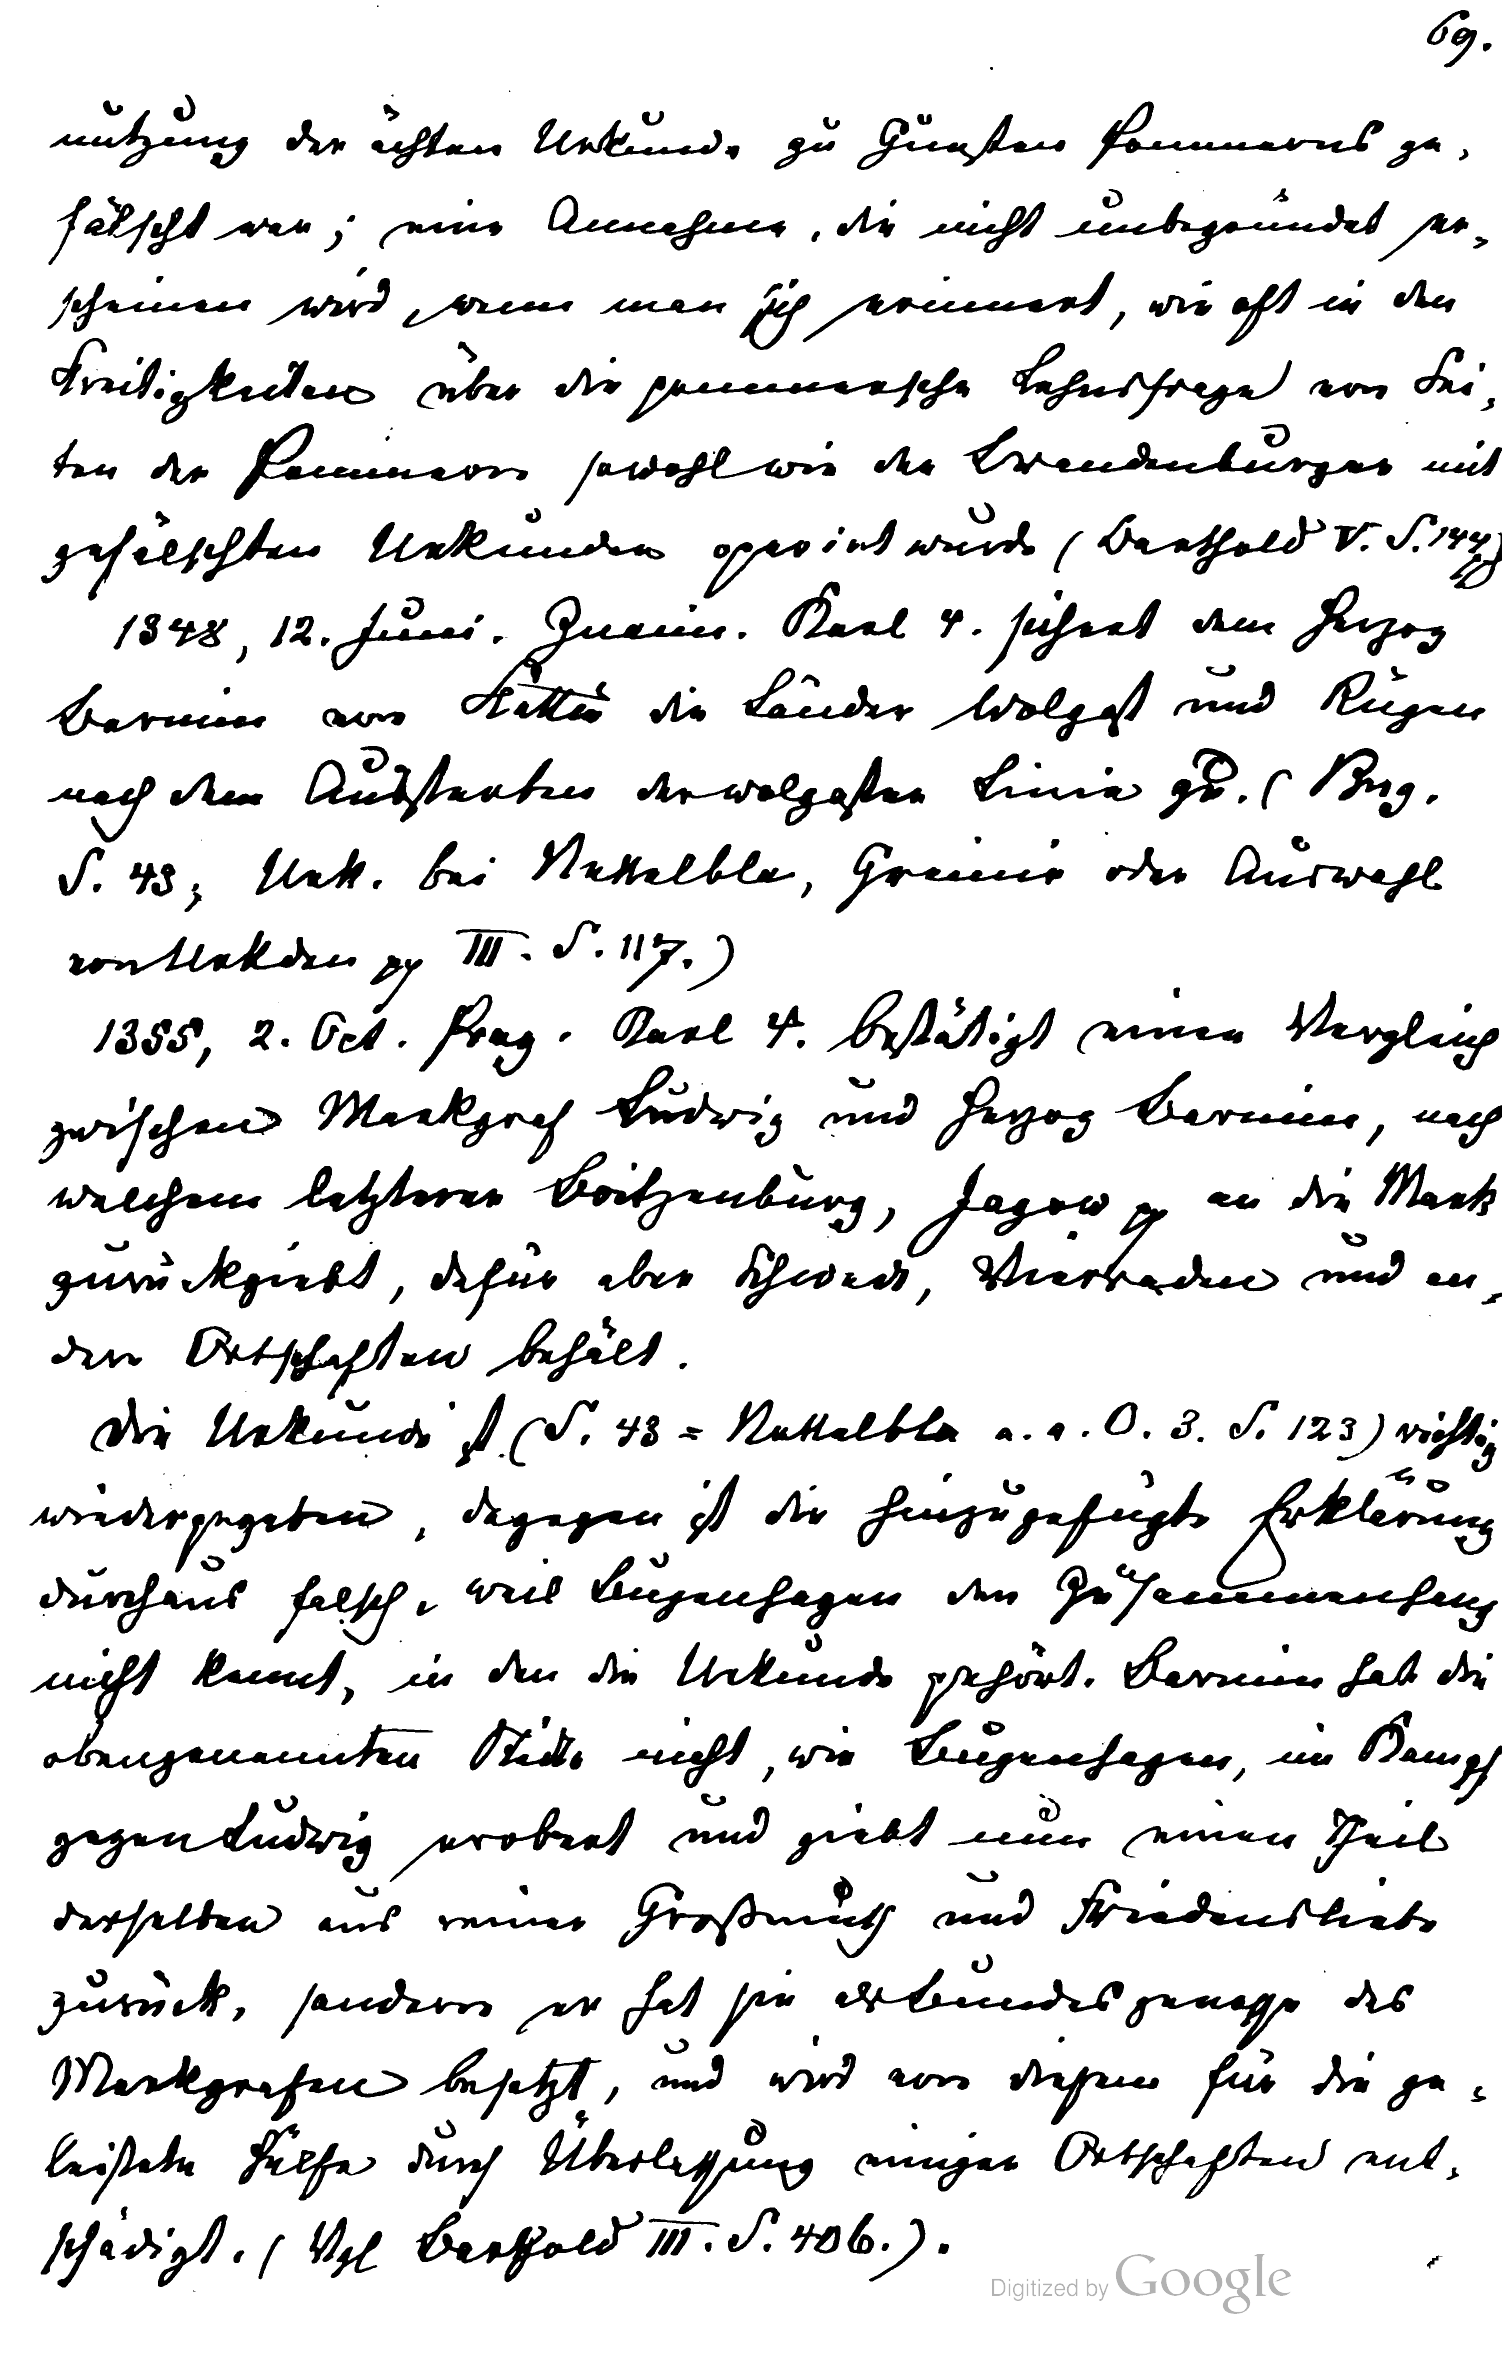 69.
nutzung der ächten Urkunde zu Gunsten Pommerns ge-
fälscht war; eine Annahme, die nicht unbegründet er-
scheinen wird, wenn man sich erinnert, wie oft in den
Streitigkeiten über die pommersche Lehnsfrage von Sei-
ten der Pommern sowohl wie der Brandenburger mit
gefälschten Urkunden operirt wurde (Barthold V. S. 144)
1348, 12. Juni. Znaim. Karl 4. sichert dem Herzog
Barnim von Stettin die Länder Wolgast und Rügen
nach dem Aussterben der wolgaster Linie zu. (Bug.
S. 43; Urk. bei Nettelbla, Greinir oder Auswahl
von Urkden pp III. S. 117.)
1355, 2. Oct. Prag. Karl 4. bestätigt einen Vergleich
zwischen Markgraf Ludwig und Herzog Barnim, nach
welchem letzterer Boitzenburg, Jagow pp an die Mark
zurückgiebt, dafür aber Schwedt, Vierraden und an-
dere Ortschaften behält.
Die Urkunde ist (S. 43 = Nettelbla a. a. O. 3. S. 123) richtig
wiedergegeben, dagegen ist die hinzugefügte Erklärung
durchaus falsch, weil Bugenhagen den Zusammenhang
nicht kennt, in den die Urkunde gehört. Barnim hat die
obengenannten Städte nicht, wie Bugenhagen, im Kampf
gegen Ludwig erobert und giebt nun einen Theil
derselben aus reiner Großmuth und Friedensliebe
zurück, sondern er hat sie als Bundesgenosse des
Markgrafen besetzt, und wird von diesem für die ge-
leistete Hülfe durch Überlassung einiger Ortschaften ent-
schädigt. (Vgl Barthold III. S. 406.).
Digitized by Google